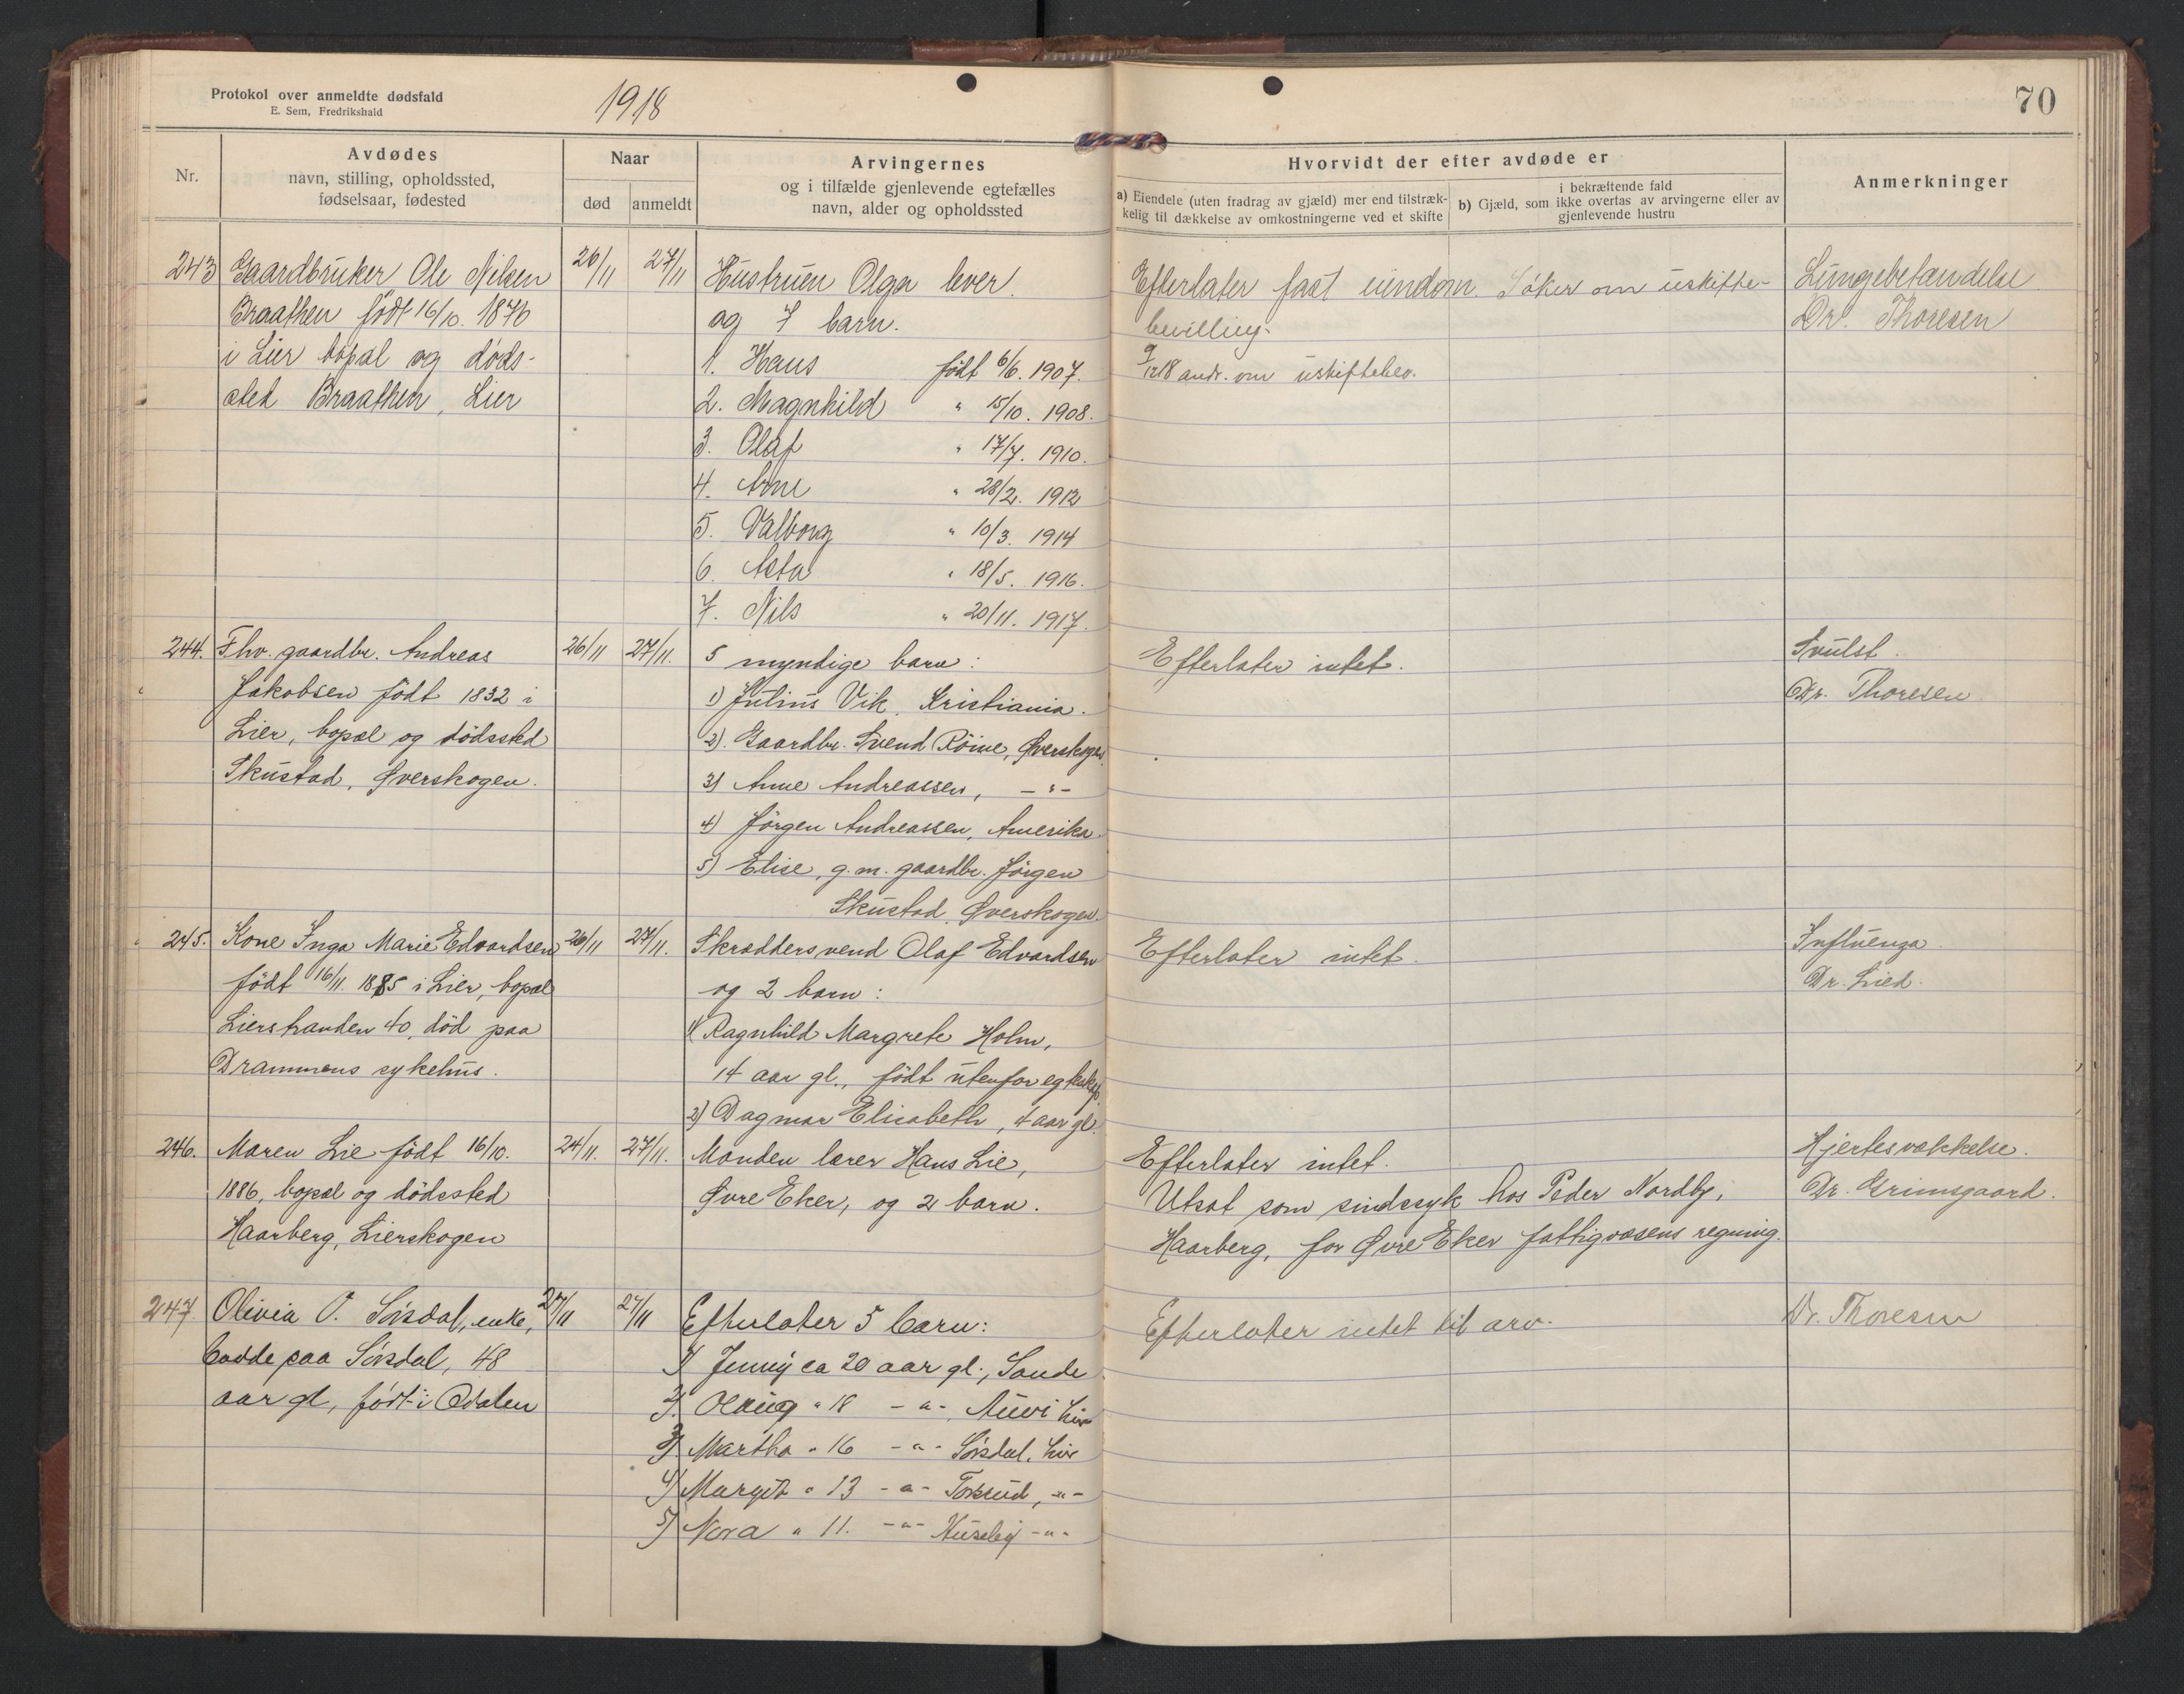 Protokol over anmeldte dødsfald
E. Sem, Fredrikshald
1918
70
Nr.
Avdødes
navn, stilling, opholdssted,
fødselsaar, fødested
Naar
død
anmeldt
Arvingernes
og i tilfælde gjenlevende egtefælles
navn, alder og opholdssted
Hvorvidt der efter avdøde er
a) Eiendele (uten fradrag av gjæld) mer end tilstræk-
kelig til dækkelse av omkostningerne ved et skifte
i bekræftende fald
b) Gjæld, som ikke overtas av arvingerne eller av
gjenlevende hustru
Anmerkninger
243 Gaardbruker Ole Nilsen
Braathen født 16/10. 1876
i Lier bopal og døds-
sted Braathen, Lier
26/11 27/11
Hustruen Olga lever.
og 7 barn.
1. Hans født 6/6. 1907.
2. Magnhild " 15/10. 1908.
3. Olaf " 17/7. 1910.
4. Arne " 28/2. 1912
5. Valborg " 10/3. 1914
6. Asta " 18/5. 1916.
7. Nils " 20/11. 1917.
Efterlater fast eiendom. Søker om uskifte-
bevilling.
9/12 18 andr. om uskiftebev.
Lungebetændelse
Dr. Thoresen
244. Fhv. gaardbr. Andreas
Jakobsen født 1832 i
Lier, bopæl og dødssted
Skustad, Øverskogen.
26/11 27/11.
5 myndige barn:
1) Julius Vik, Kristiania.
2). Gaardbr. Svend Röine, Øverskogen
3) Anne Andreassen, - " -
4) Jörgen Andreassen, Amerika.
5) Elise, g.m. gaardbr. Jörgen
Skustad, Øverskogen.
Efterlater intet.
Svulst.
Dr. Thoresen
245. Kone Inga Marie Edvardsen
født 16/11. 1885 i Lier, bopæl
Lierstranden 40, död paa
Drammens sykehus.
26/11 27/11.
Skræddersvend Olaf Edvardsen
og 2 barn:
1) Ragnhild Margrete Holm,
14 aar gl., födt utenfor egteskap
2) Dagmar Elisabeth, 4 aar gl.
Efterlater intet.
Influenza.
Dr. Lied.
246. Maren Lie født 16/10.
1886, bopæl og dødssted
Haarberg, Lierskogen
24/11. 27/11.
Manden lærer Hans Lie,
Øvre Eker, og 2 barn.
Efterlater intet.
Utsat som sindssyk hos Peder Nordby,
Haarberg, for Øvre Eker fattigvæsens regning.
Hjertesvækkelse.
Dr. Grimsgaard.
247 Olivia O. Sørsdal, enke,
bodde paa Sørsdal, 48
aar gl, født i Odalen
27/11 27/11
Efterlater 5 barn:
1) Jenny ca 20 aar gl., Sande
2) Olaug " 18 - " - Auvi Lier
3) Martha " 16 - " - Sørsdal, Lier
4) Margit " 13 - " - Torsrud, - " -
5) Nora " 11. - " - Huseby - " -
Efterlater intet til arv.
Dr. Thoresen